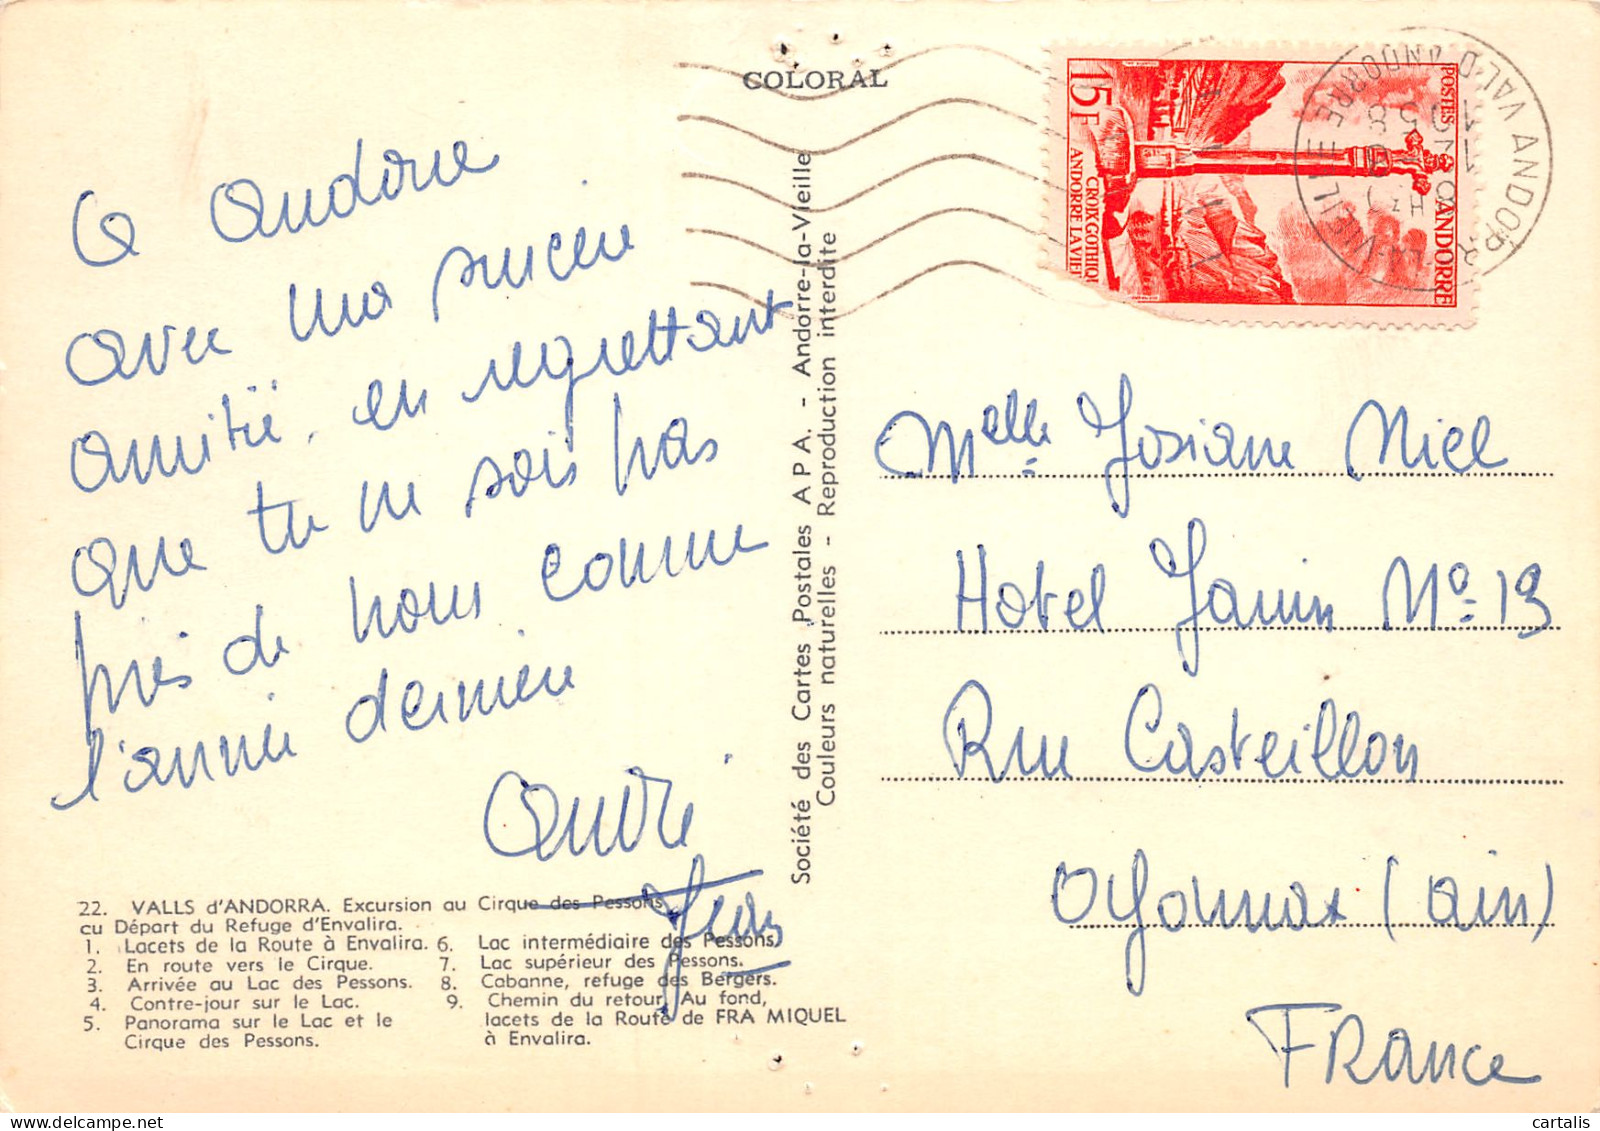 COLORAL
D'Andorre
avec ma sincère
amitié, en regrettant
que tu ne sois pas
près de nous comme
l'année dernière
André
Jean
22. VALLS d'ANDORRA. Excursion au Cirque des Pessons
cu Départ du Refuge d'Envalira.
1. Lacets de la Route à Envalira.
2. En route vers le Cirque.
3. Arrivée au Lac des Pessons.
4. Contre-jour sur le Lac.
5. Panorama sur le Lac et le
Cirque des Pessons.
6. Lac intermédiaire des Pessons.
7. Lac supérieur des Pessons.
8. Cabanne, refuge des Bergers.
9. Chemin du retour. Au fond,
lacets de la Route de FRA MIQUEL
à Envalira.
Société des Cartes Postales A P A. - Andorre-la-Vieille
Couleurs naturelles - Reproduction interdite
POSTES ANDORRE
15F
CROIX GOTHIQUE
ANDORRE LA VIEI
ANDORRE LA VIEILLE
VAL D'ANDORRE
Melle Josiane Niel
Hotel Janin No 19
Rue Casteillon
Oyonnax (ain)
FRance
cartalis